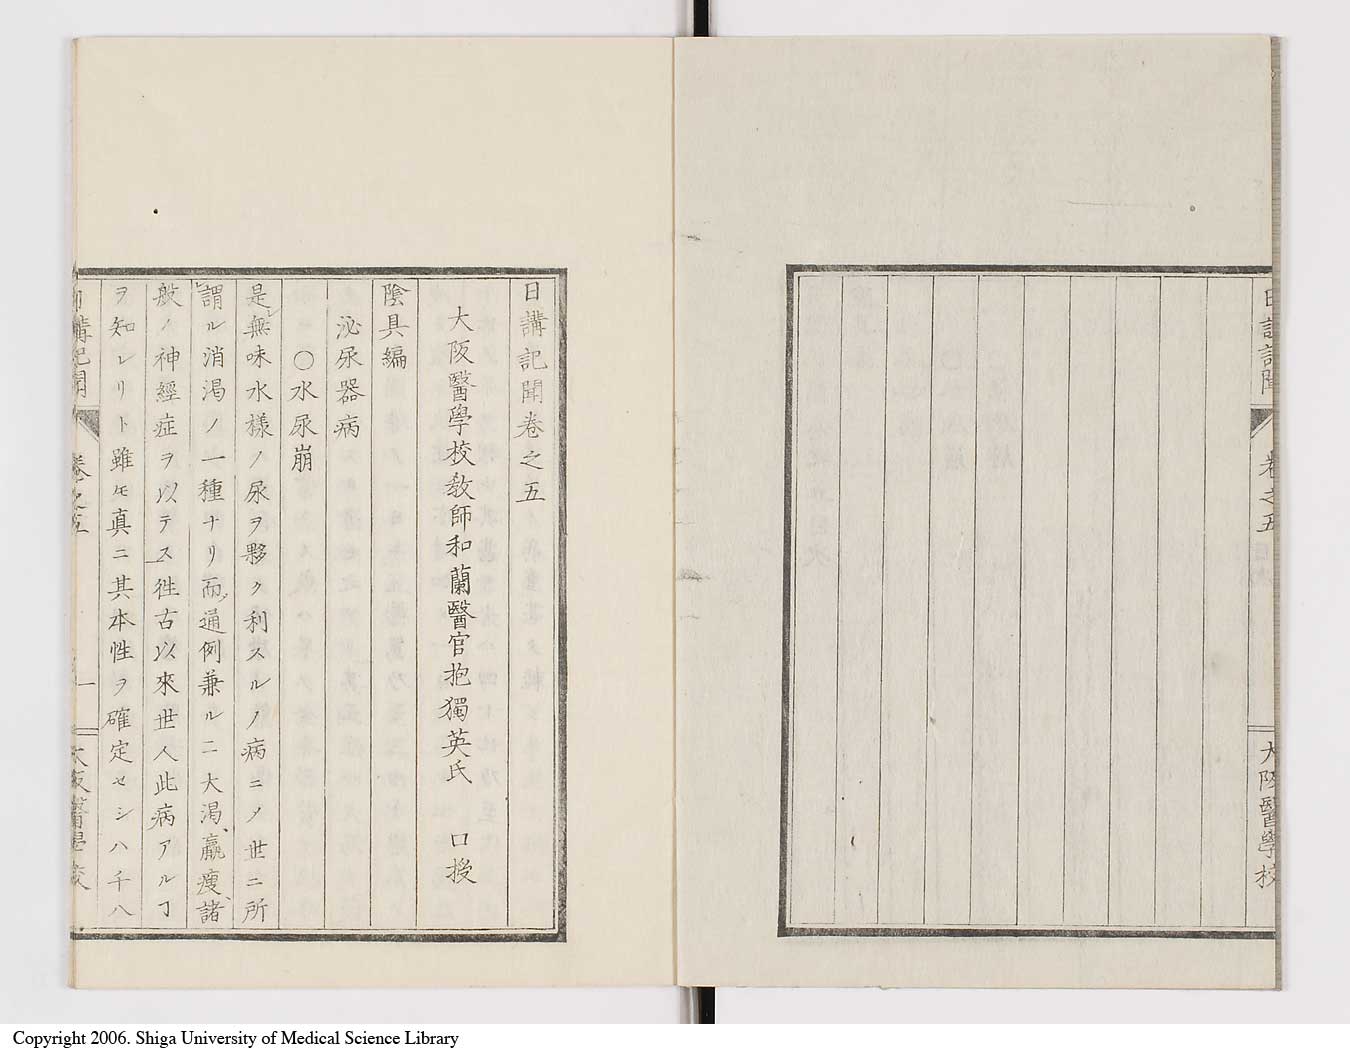 日講記聞
卷之五
大阪醫學校
日講記聞卷之五
大阪醫學校敎師和蘭醫官抱獨英氏 口授
陰具編
泌尿器病
〇水尿崩
是無味水樣ノ尿ヲ夥ク利スルノ病ニノ世ニ所
謂ル消渇ノ一種ナリ而通例兼ルニ大渇、羸瘦、諸
般ノ神經症ヲ以テス徃古以來世人此病アルヿ
ヲ知レリト雖モ真ニ其本性ヲ確定セシハ千八
日講記聞
卷之五
一
大阪醫學校
Copyright 2006. Shiga University of Medical Science Library